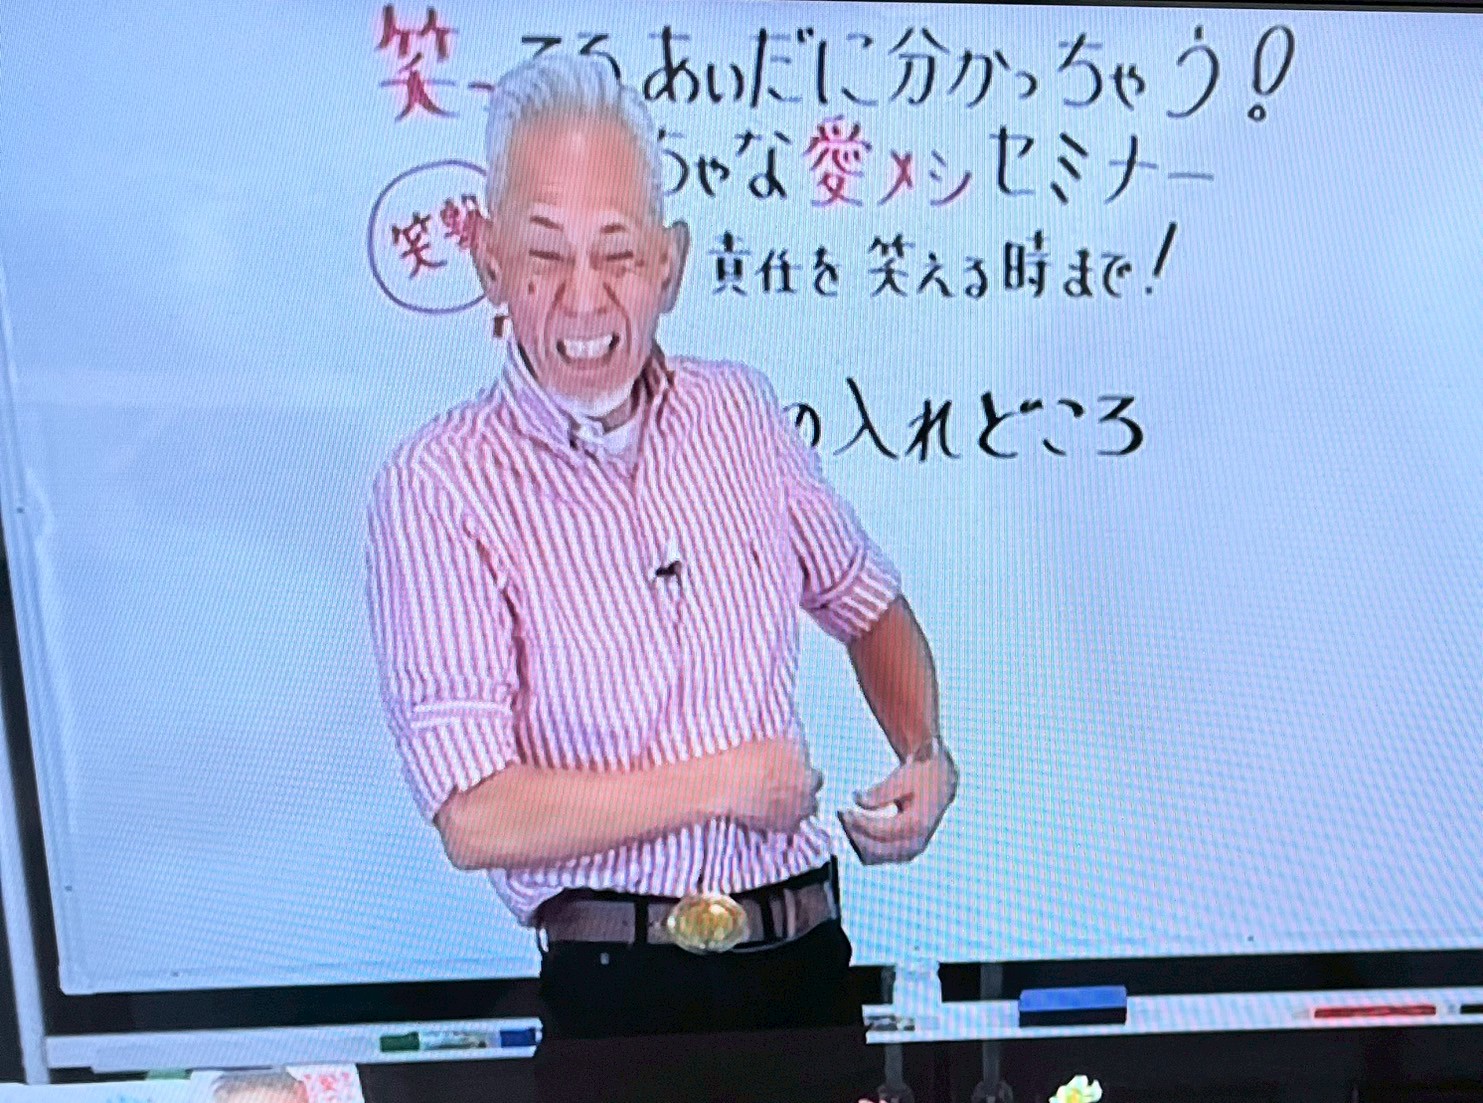 笑ってるあいだに分かっちゃう!
ちゃな愛メシセミナー
笑
責任を笑える時まで!
の入れどころ